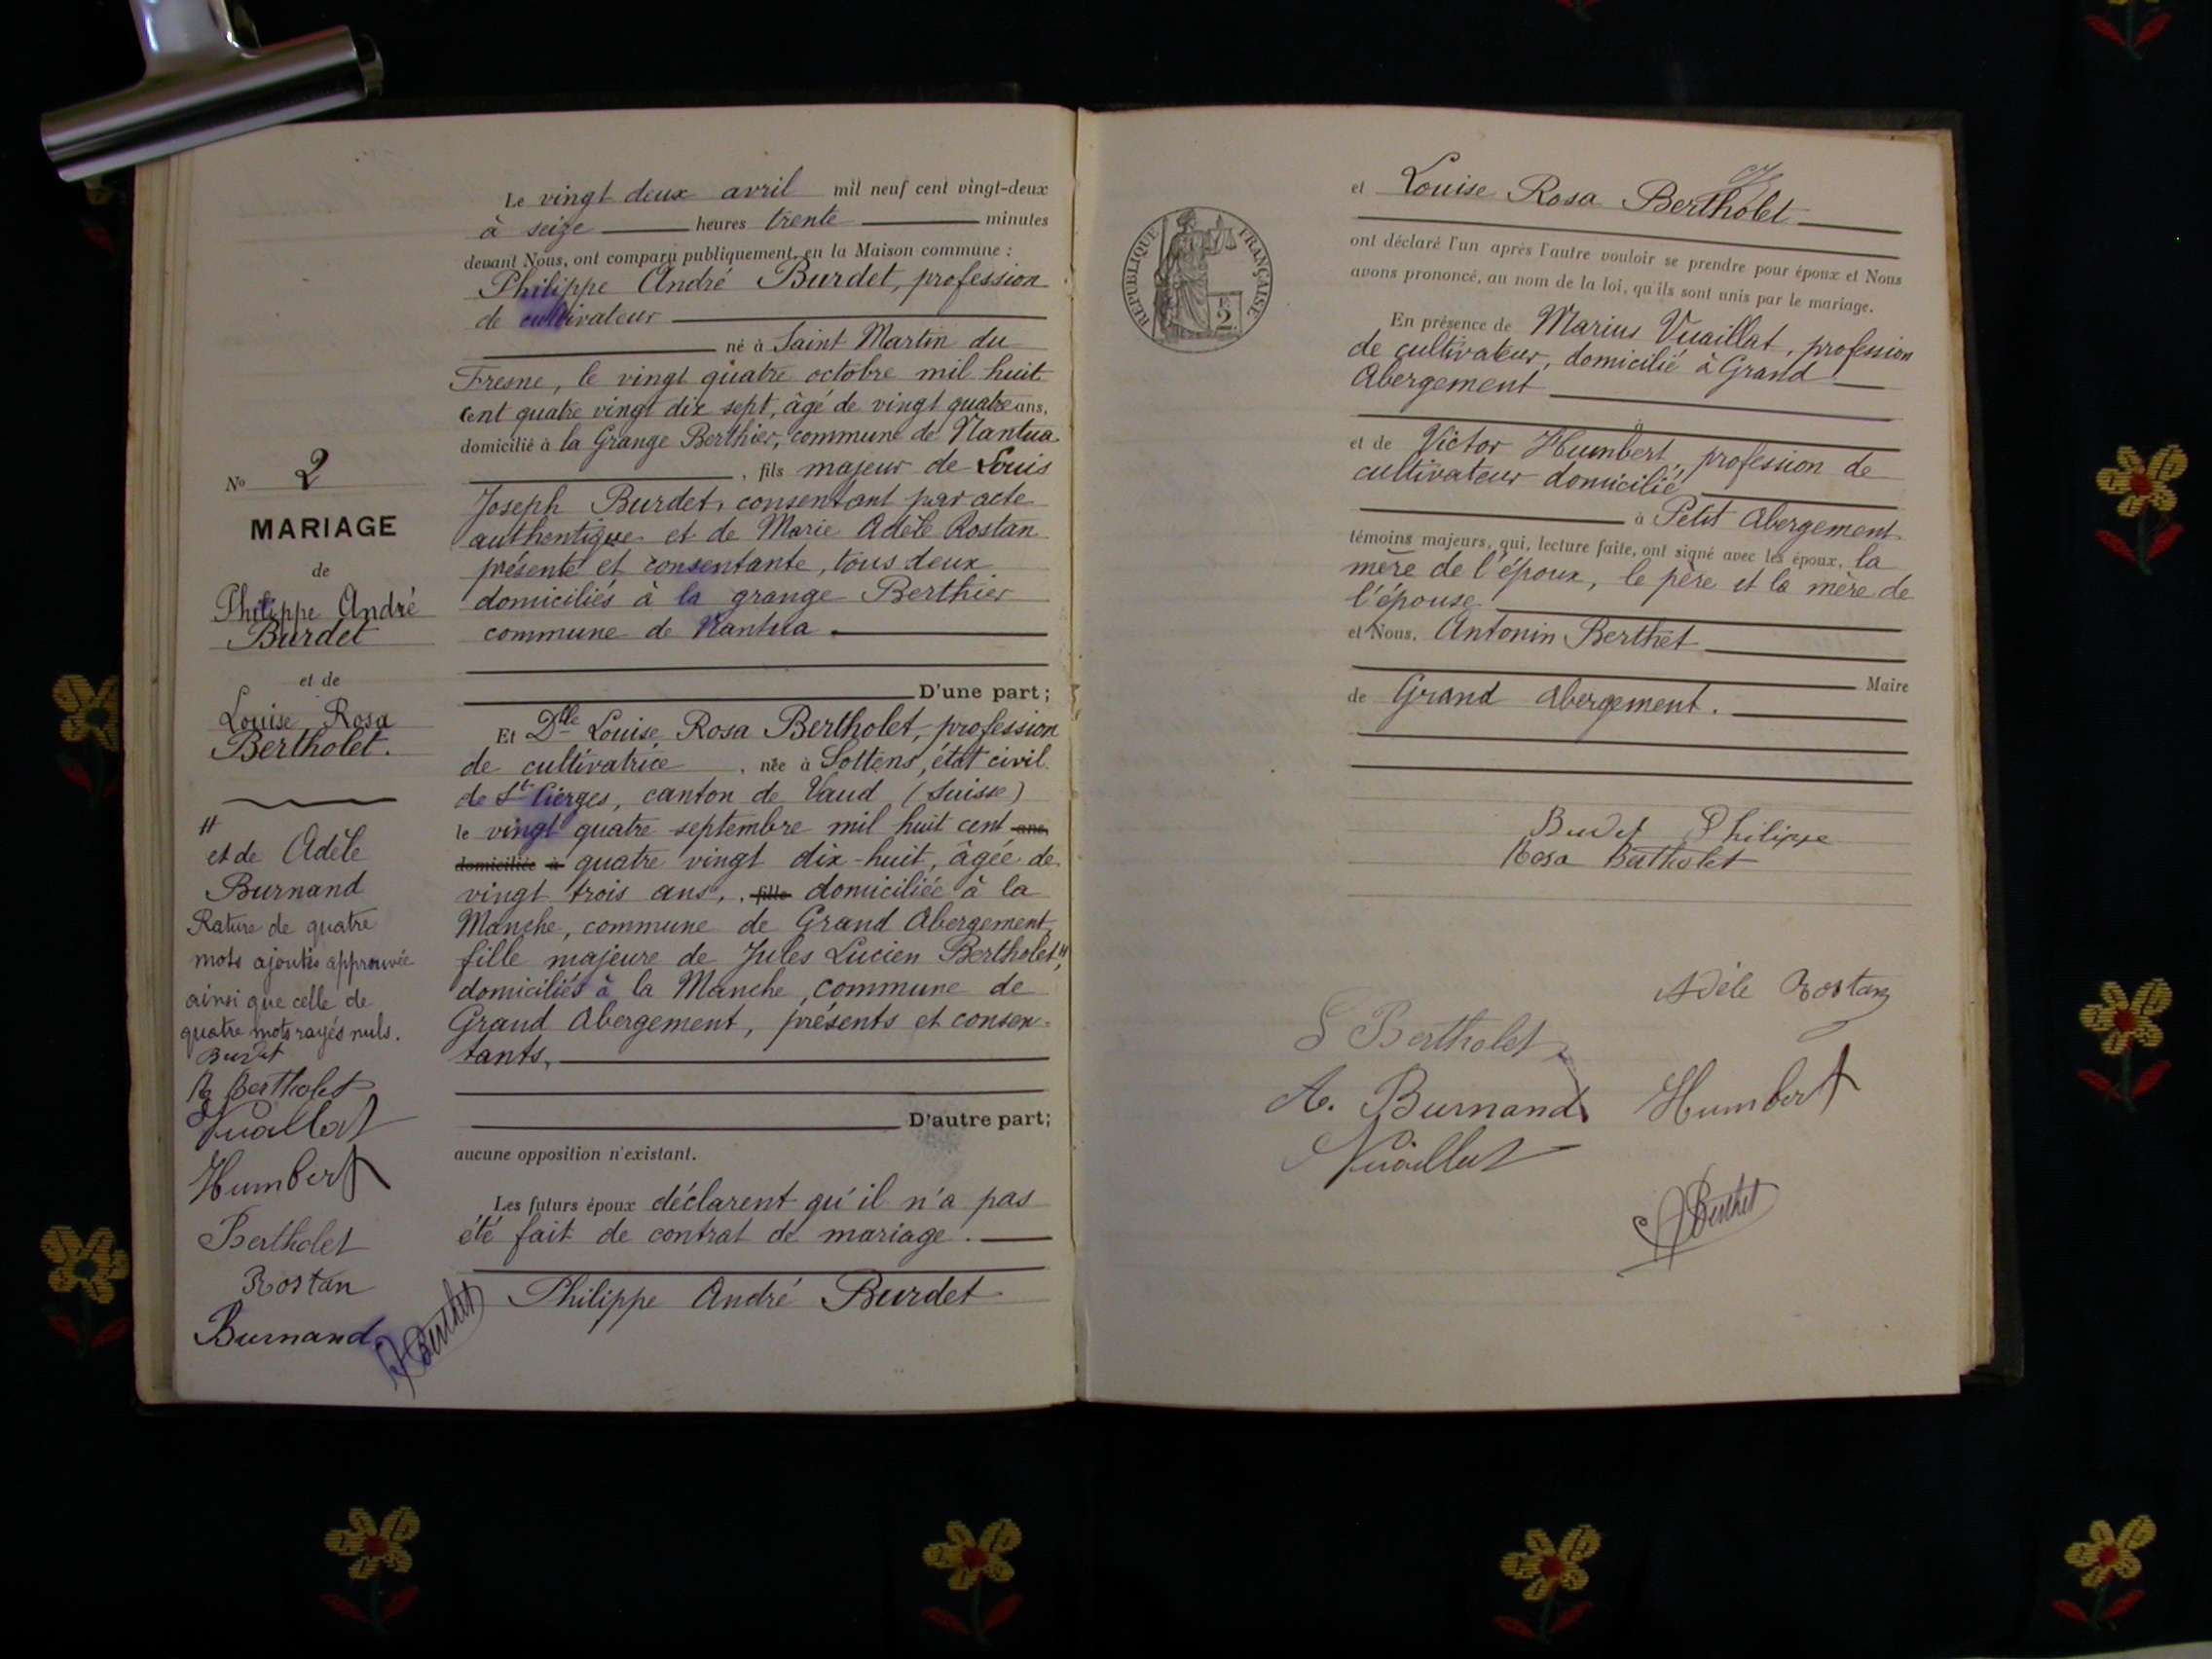 Le vingt deux avril mil neuf cent vingt-deux
à seize heures trente minutes
devant Nous, ont comparu publiquement en la Maison commune :
Philippe André Burdet, profession
de cultivateur
né à Saint Martin du
Fresne, le vingt quatre octobre mil huit
cent quatre vingt dix sept, âgé de vingt quatre ans,
domicilié à la Grange Berthier, commune de Nantua
, fils majeur de Louis
Joseph Burdet, consentant par acte
authentique et de Marie Adèle Rostan
présente et consentante, tous deux
domiciliés à la grange Berthier
commune de Nantua.
D'une part ;
Et Dlle Louise Rosa Bertholet, profession
de cultivatrice , née à Sottens, état civil
de St Cierges, canton de Vaud (Suisse)
le vingt quatre septembre mil huit cent ans,
domiciliée à quatre vingt dix-huit, âgée de
vingt trois ans, , fille domiciliée à la
Manche, commune de Grand Abergement,
fille majeure de Jules Lucien Bertholet #,
domiciliés à la Manche, commune de
Grand Abergement, présents et consen-
tants,
D'autre part ;
aucune opposition n'existant.
Les futurs époux déclarent qu'il n'a pas
été fait de contrat de mariage.
Philippe André Burdet
No 2
MARIAGE
de
Philippe André
Burdet
et de
Louise Rosa
Bertholet.
#
et de Adèle
Burnand
Rature de quatre
mots ajoutés approuvée
ainsi que celle de
quatre mots rayés nuls.
Burdet
R Bertholet
Vuaillat
Humbert
Bertholet
Rostan
Burnand
A Berthet
RÉPUBLIQUE FRANÇAISE
2
et Louise Rosa Bertholet
ont déclaré l'un après l'autre vouloir se prendre pour époux et Nous
avons prononcé, au nom de la loi, qu'ils sont unis par le mariage.
En présence de Marius Vuaillat, profession
de cultivateur, domicilié à Grand
Abergement
et de Victor Humbert, profession de
cultivateur domicilié
à Petit Abergement
témoins majeurs, qui, lecture faite, ont signé avec les époux, la
mère de l'époux, le père et la mère de
l'épouse
et Nous, Antonin Berthet
Maire
de Grand Abergement.
Burdet Philippe
Rosa Bertholet
Adèle Rostan
L Bertholet
A. Burnand Humbert
Vuaillat
A Berthet